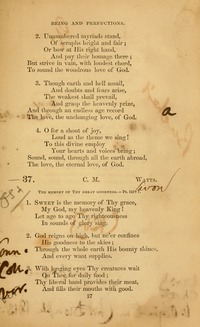 BEING AND PERFECTIONS.
2. Unnumbered myriads stand,
Of seraphs bright and fair;
Or bow at His right hand,
And pay their homage there;
But strive in vain, with loudest chord,
To sound the wondrous love of God.
3. Though earth and hell assail,
And doubts and fears arise,
The weakest shall prevail,
And grasp the heavenly prize,
And through an endless age record
The love, the unchanging love, of God.
a
4. O for a shout of joy,
Loud as the theme we sing!
To this divine employ
Your hearts and voices bring;
Sound, sound, through all the earth abroad,
The love, the eternal love, of God.
37. C. M. WATTS.
THE MEMORY OF THY GREAT GOODNESS.
1. SWEET is the memory of Thy grace,
My God, my heavenly King!
Let age to age Thy righteousness
In sounds of glory sing.
2. God reigns on high, but ne'er confines
His goodness to the skies;
Through the whole earth His bounty shines,
And every want supplies.
3. With longing eyes Thy creatures wait
On Thee for daily food;
Thy liberal hand provides their meat,
And fills their mouths with good.
27